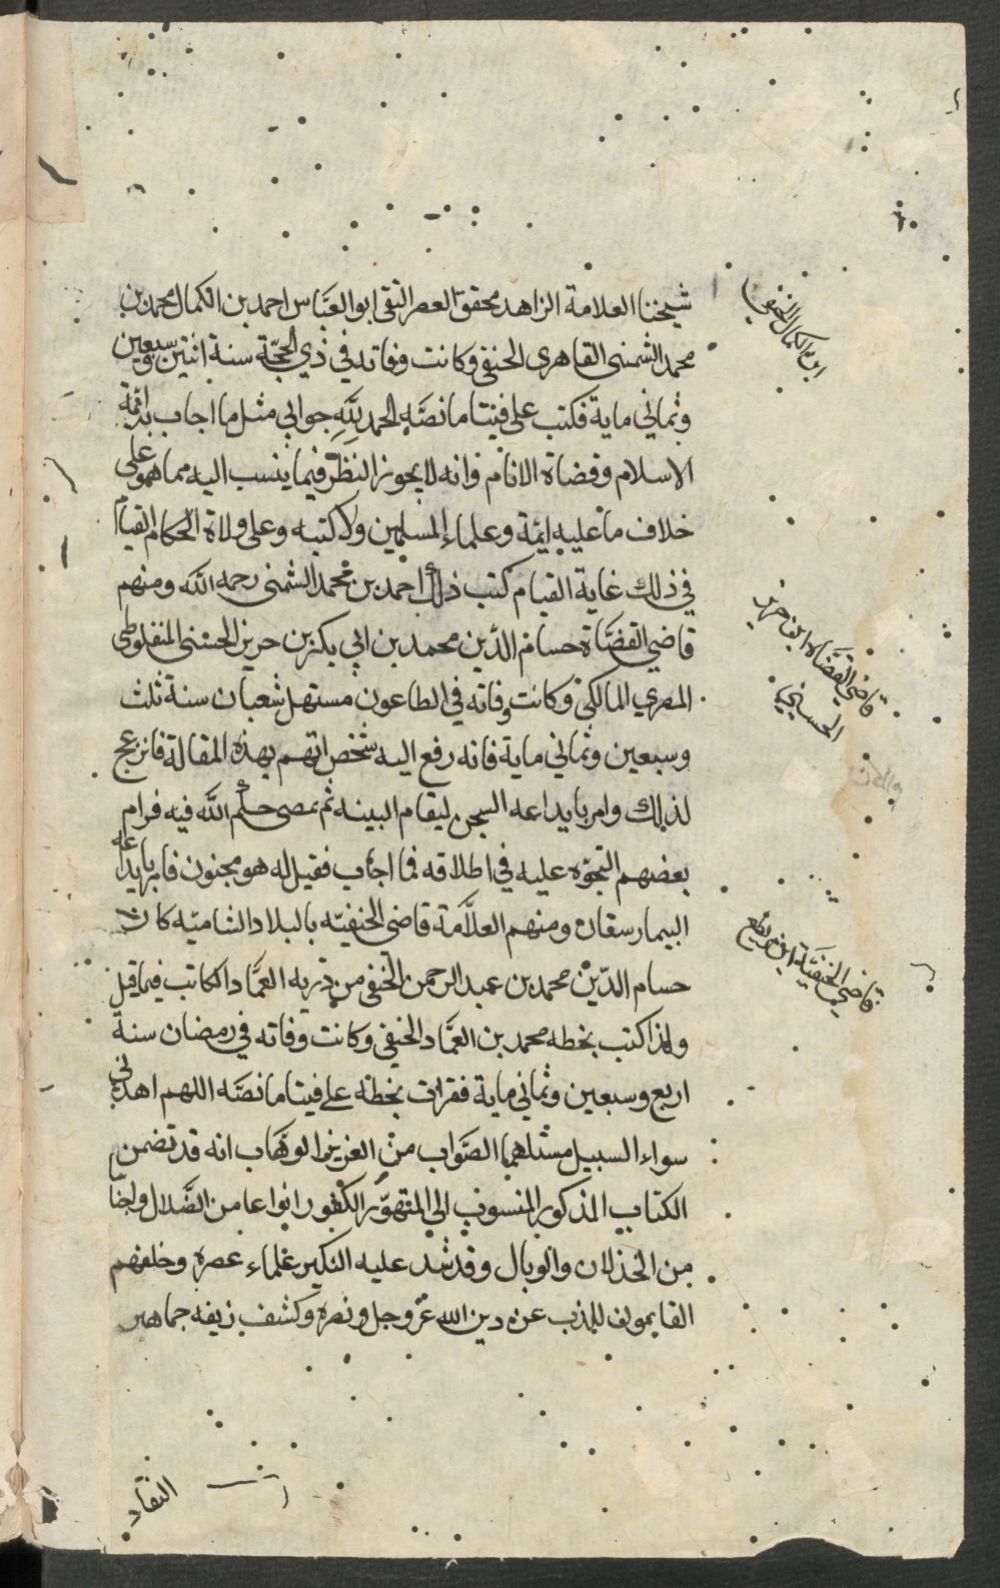 شيخنا العلامة الزاهد محقق العصر التقى ابو العبّاس احمد بن الكمال محمد بن
محمد الشمنى القاهرى الحنفى وكانت وفاته في ذي الحجّة سنة اثنتين وسبعين
وثماني ماية فكتب على فتيا ما نصّه الحمد للّهِ جوابي مثل ما اجاب به ائمة
الاسلام وقضاة الانام وانه لا يجوز النظر فيما ينسب اليه مما هو على
خلاف ما عليه ايمة وعلماء المسلمين ولا كتبه وعلى ولاة الحكام القيام
في ذلك غاية القيام كتب ذلك احمد بن محمد الشمنى رحمه الله ومنهم
قاضي القضاة حسام الدّين محمد بن ابي بكر بن حريز الحسنى المنفلوطى
المصري المالكي وكانت وفاته في الطاعون مستهل شعبان سنة ثلث
وسبعين وثماني ماية فانه رفع اليه شخص اتهم بهذه المقالة فانزعج
لذلك وامر بايداعه السجن ليقام البينه ثم يمضى حكم الله فيه فرام
بعضهم التجوّه عليه في اطلاقه فما اجاب فقيل له هو مجنون فامر بايداعه
البيمارستان ومنهم العلاّمة قاضى الحنفيّه بالبلاد الشاميّه كان
حسام الدّين محمد بن عبد الرحمن الحنفى من ذريه العمّاد الكاتب فيما قيل
ولذا كتب بخطه محمد بن العمّاد الحنفى وكانت وفاته في رمضان سنة
اربع وسبعين وثماني ماية فقرات بخطّه على فتيا ما نصّه اللهم اهدنى
سواء السبيل مستلهما الصّواب من العزيز الوهّاب انه قد تضمن
الكتاب المذكور المنسوب الى المتهوّر الكفور انواعا من الضّلال واجنا
من الخذلان والوبال وقد شد عليه النكير علماء عصره وخلفهم
القايمون للذب عن دين الله عزّ وجل ونصره وكشف زيفه جماهير
ابن الكمال الحنفي
قاضي القضاه ابن حريز
الحسيني
قاضي الحنفيّة ابن
النقاد